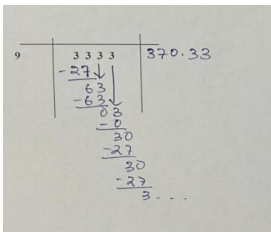 9 3333 370.33
-27
63
-63
03
-0
30
-27
30
-27
3...